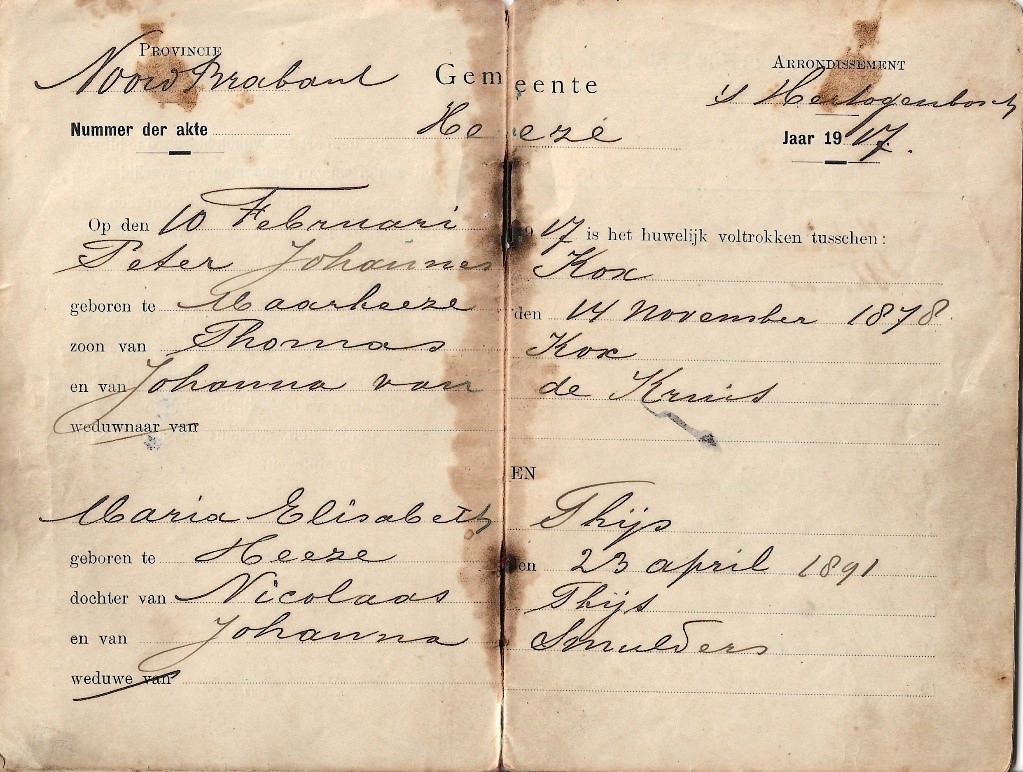 Provincie Arrondissement
Noord Brabant Gemeente 's Hertogenbosch
Nummer der akte Heeze Jaar 1917.
Op den 10 Februari 1917 is het huwelijk voltrokken tusschen:
Peter Johannes Kox
geboren te Maarheeze den 14 November 1878.
zoon van Thomas Kox
en van Johanna van de Kruis
weduwnaar van
EN
Maria Elisabeth Thijs
geboren te Heeze den 23 april 1891
dochter van Nicolaas Thijs
en van Johanna Smulders
weduwe van